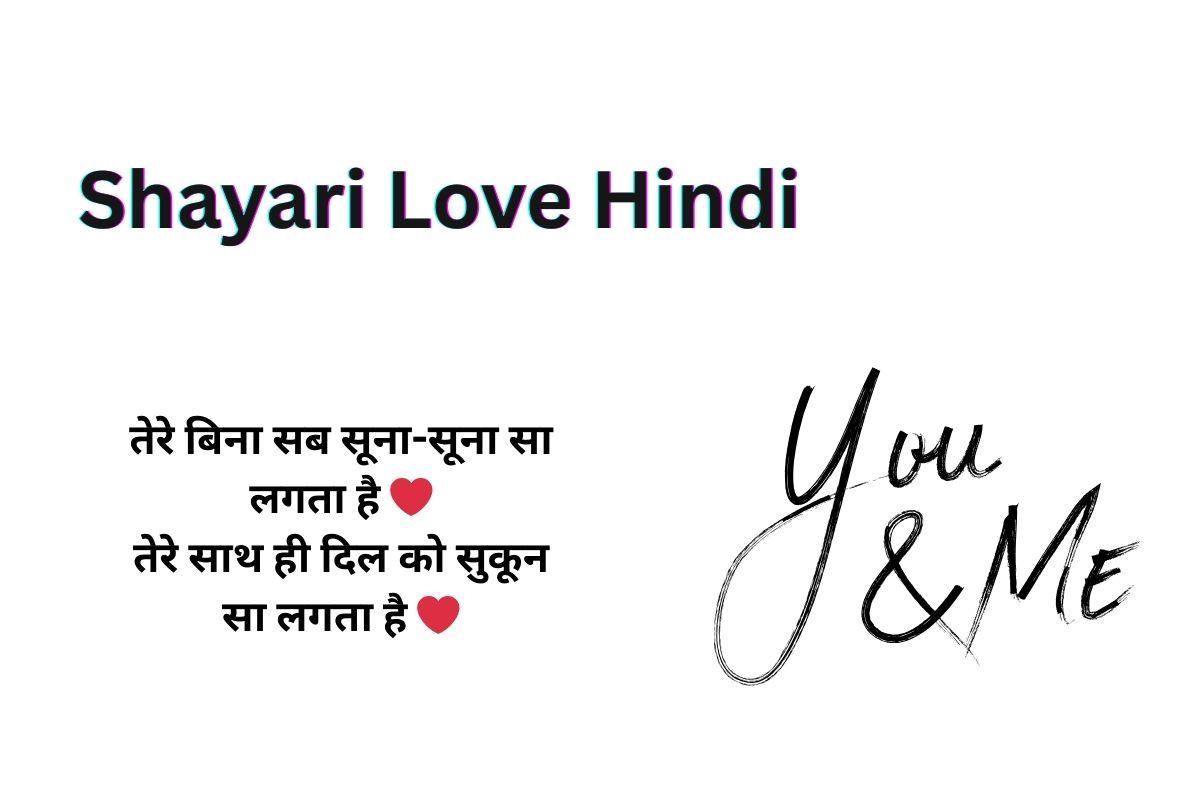 Shayari Love Hindi
तेरे बिना सब सूना-सूना सा
लगता है ❤️
तेरे साथ ही दिल को सुकून
सा लगता है ❤️
You
& ME